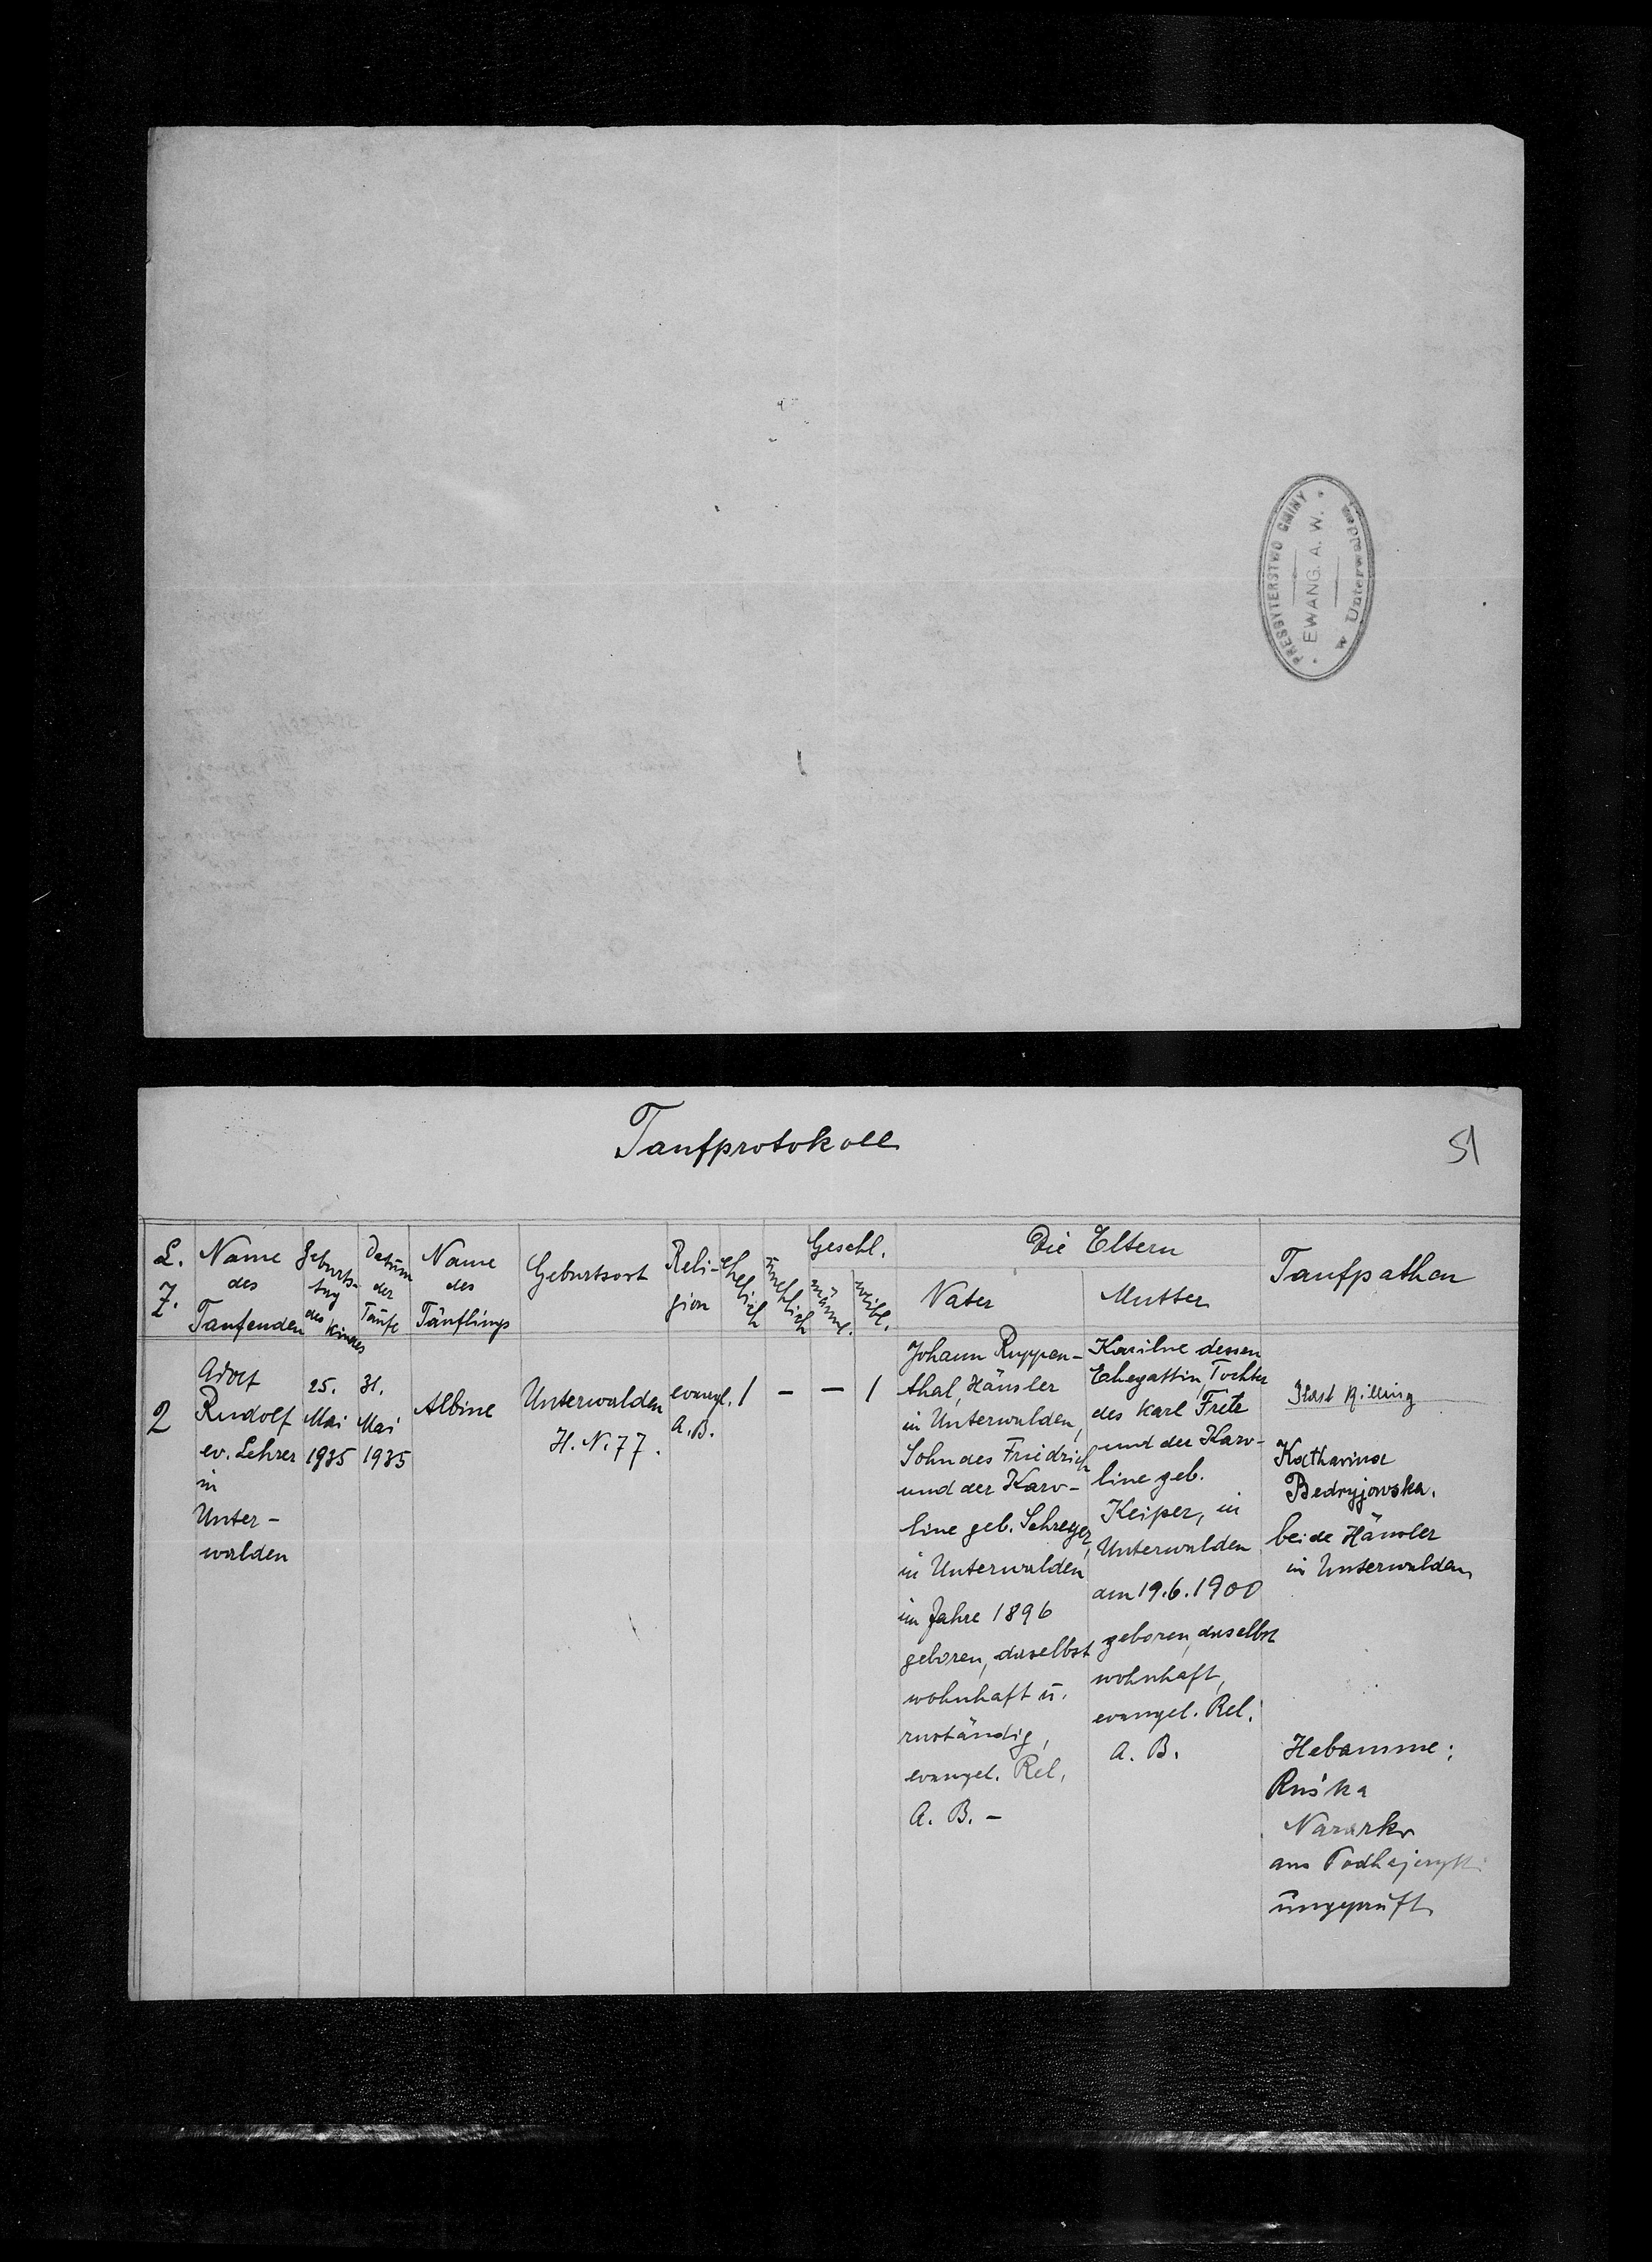 PRESBYTERSTWO GMINY
EWANG. A. W.
w Unterwalden
Taufprotokoll
51
L. Z.
Name des Taufenden
Geburts-tag des Kindes
Datum der Taufe
Name des Täuflings
Geburtsort
Reli-gion
ehelich
unehlich
Geschl.
männl.
weibl.
Die Eltern
Vater
Mutter
Taufpathen
2
Adolf
Rudolf
ev. Lehrer
in
Unter-
walden
25.
Mai
1935
31.
Mai
1935
Albine
Unterwalden
H. N. 77.
evangl.
A. B.
1
-
-
1
Johann Ruppen-
thal, Häusler
in Unterwalden,
Sohn des Friedrich
und der Karo-
line geb. Schreyer,
in Unterwalden
im Jahre 1896
geboren, daselbst
wohnhaft u.
zuständig,
evangel. Rel.
A. B. -
Karilne dessen
Ehegattin, Tochter
des Karl Fretz
und der Karo-
line geb.
Keiper, in
Unterwalden
am 19.6.1900
geboren, daselbst
wohnhaft,
evangel. Rel.
A. B.
Killing
Katharina
Bedryjowska.
beide Häusler
in Unterwalden
Hebamme:
Ruśka
aus
ungeprüft